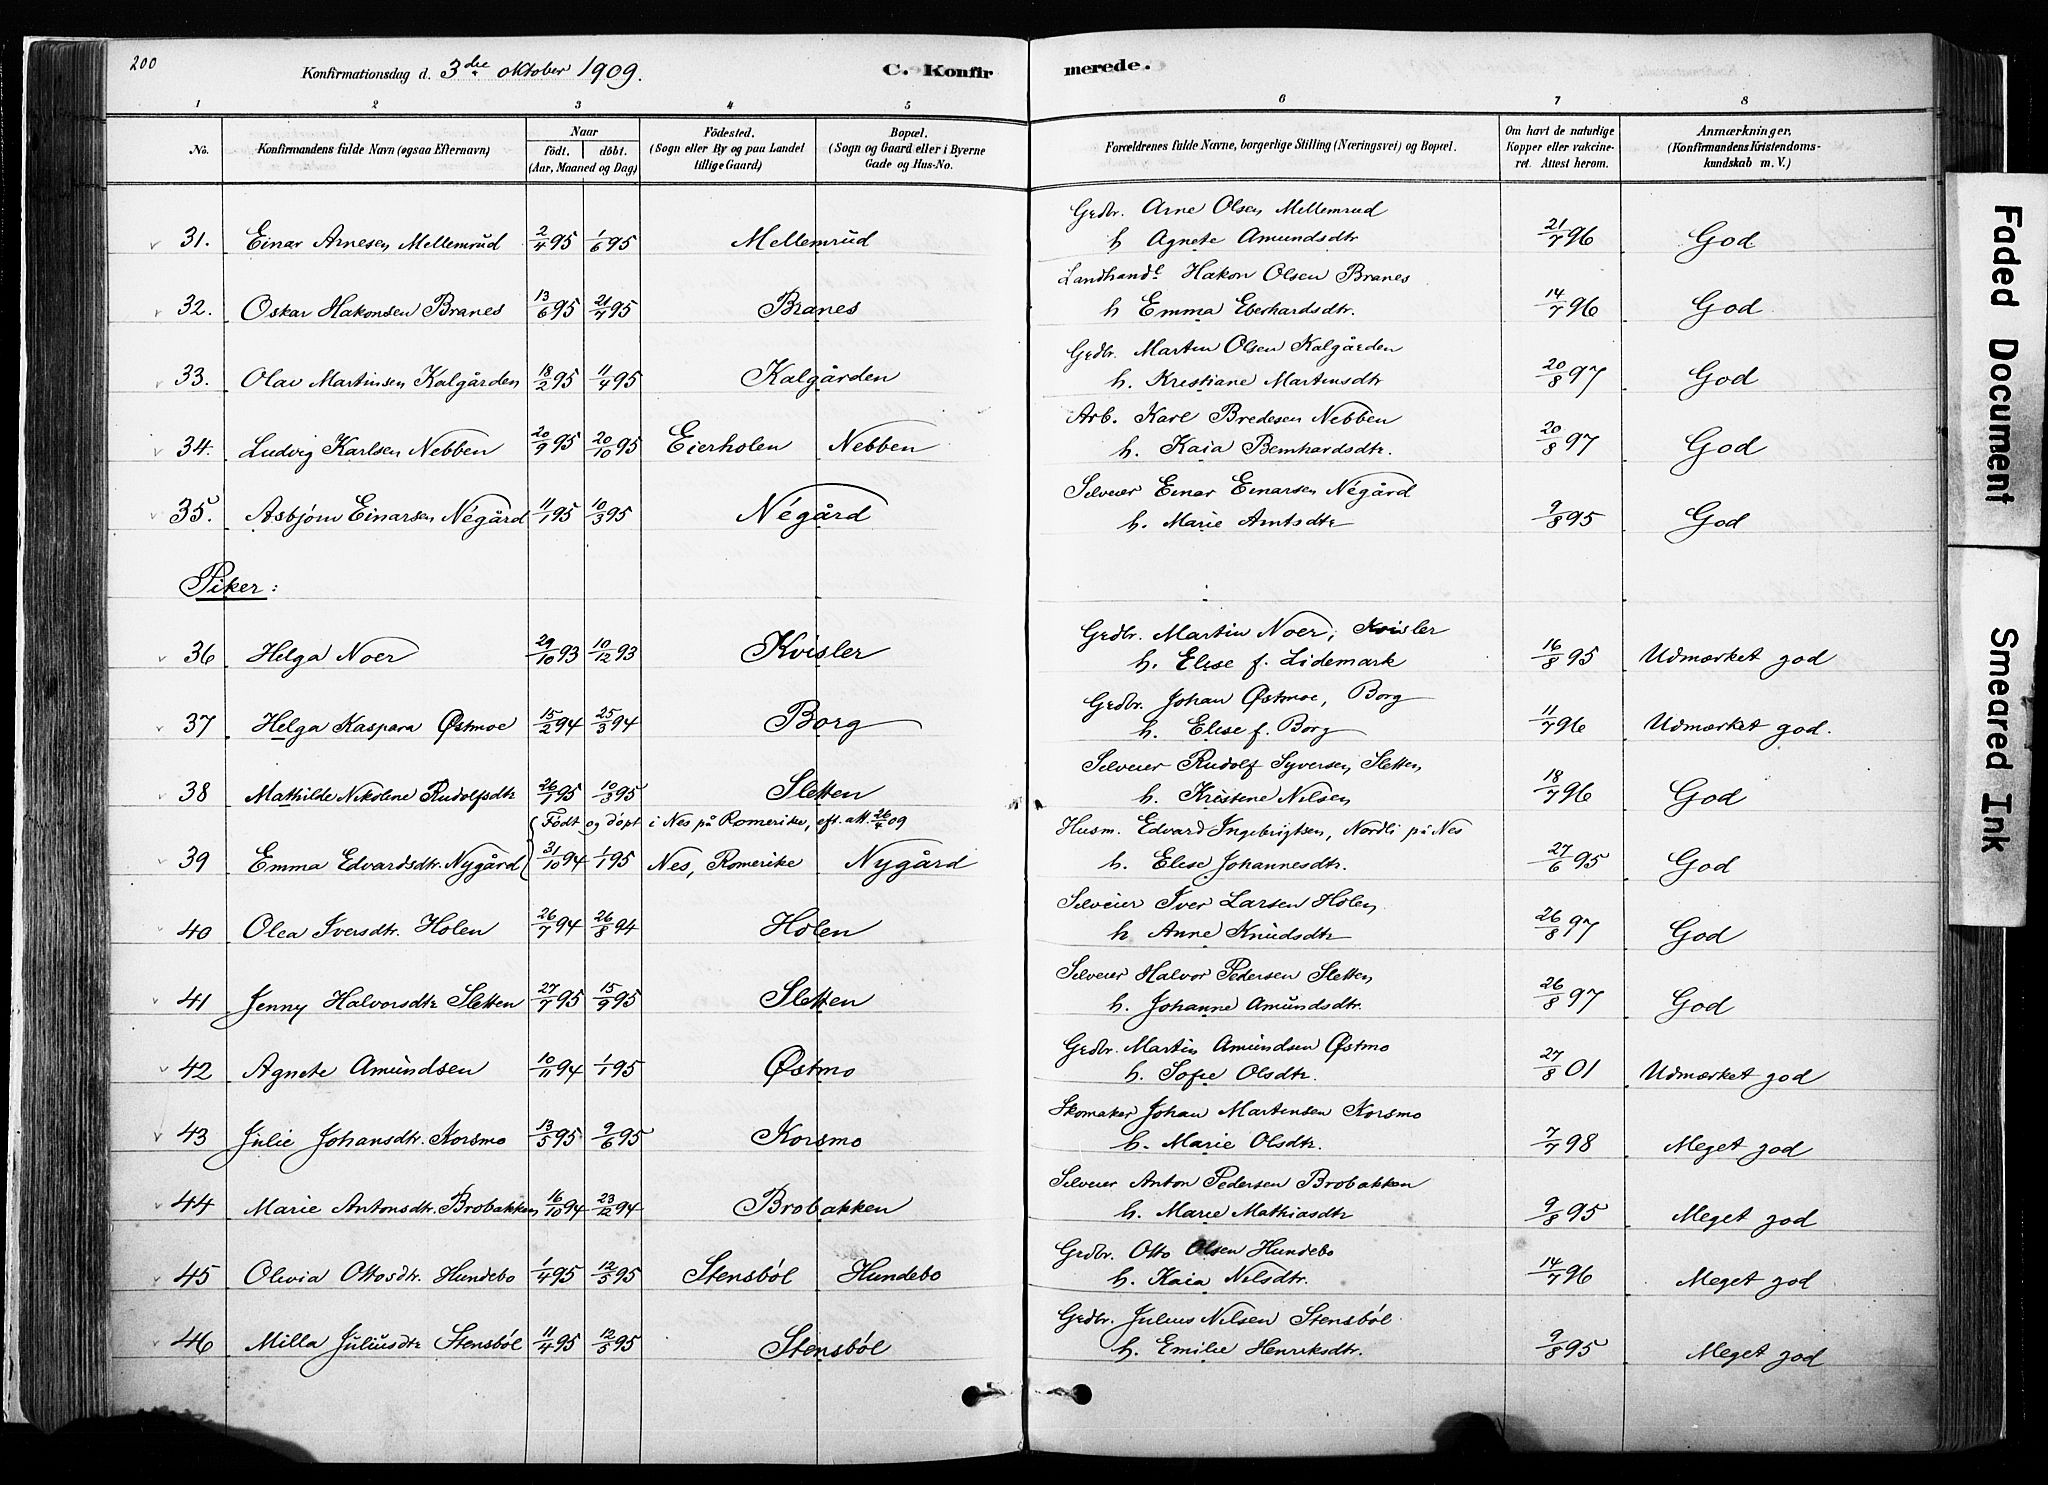 200
Konfirmationsdag d. 3die oktober 1909.
C. Konfirmerede.
1 2 3 4 5 6 7 8
No.
Konfirmandens fulde Navn (ogsaa Efternavn)
Naar
födt. döbt.
(Aar, Maaned og Dag)
Födested.
(Sogn eller By og paa Landet tillige Gaard)
Bopæl.
(Sogn og Gaard eller i Byerne Gade og Hus-No.
Forældrenes fulde Navne, borgerlige Stilling (Næringsvei) og Bopæl.
Om havt de naturlige Kopper eller vakcineret. Attest herom.
Anmærkninger,
(Konfirmandens Kristendomskundskab m. V.)
Grdbr. Arne Olsen Mellemrud
31. Einar Arnesen Mellemrud 2/4 95 1/6 95 Mellemrud h Agnete Amundsdtr 21/7 96 God
Landhandl Hakon Olsen Branes
32. Oskar Hakonsen Branes 13/6 95 21/7 95 Branes h Emma Eberhardsdtr. 14/7 96 God
Grdbr. Martin Olsen Kalgården
33. Olav Martinsen Kalgården 18/2 95 11/4 95 Kalgården h. Kristiane Martinsdtr 20/8 97 God
Arb. Karl Bredesen Nebben
34. Ludvig Karlsen Nebben 20/9 95 20/10 95 Eierholen Nebben h. Kaia Bernhardsdtr. 20/8 97 God
Selveier Einar Einarsen Négård
35. Asbjørn Einarsen Négård 11/1 95 10/3 95 Négård h. Marie Arntsdtr 9/8 95 God
Piker:
Grdbr. Martin Noer, Kvisler
36 Helga Noer 29/10 93 10/12 93 Kvisler h. Elise f. Lidemark 16/8 95 Udmærket god
Grdbr. Johan Østmoe, Borg
37 Helga Kaspara Østmoe 15/2 94 25/3 94 Borg h. Elise f. Borg 11/7 96 Udmærket god.
Selveier Rudolf Syversen Sletten
38 Mathilde Nikoline Rudolfsdtr 26/1 95 10/3 95 Sletten h. Kristine Nilsen 18/7 96 God
Födt og döpt i Nes på Romerike, eft. att. 26/4 09 Husm. Edvard Ingebrigtsen, Nordli på Nes
39 Emma Edvardsdtr. Nygård 31/10 94 1/1 95 Nes, Romerike Nygård h. Elise Johannesdtr. 27/6 95 God
Selveier Iver Larsen Holen
40 Olea Iversdtr. Holen 26/7 94 26/8 94 Holen h Anne Knudsdtr 26/8 97 God
Selveier Halvor Pedersen Sletten
41 Jenny Halvorsdtr Sletten 27/7 95 15/9 95 Sletten h. Johanne Amundsdtr. 26/8 97 God
Grdbr. Martin Amundsen Østmo
42 Agnete Amundsen 10/11 94 1/1 95 Østmo h. Sofie Olsdtr. 27/8 01 Udmærket god
Skomaker Johan Martinsen Korsmo
43 Julie Johansdtr. Korsmo 13/5 95 9/6 95 Korsmo h. Marie Olsdtr. 7/7 98 Meget god
Selveier Anton Pedersen Brobakken
44 Marie Antonsdtr. Brobakken 16/10 94 23/12 94 Brobakken h. Marie Mathiasdtr 9/8 95 Meget god
Grdbr. Otto Olsen Hundebo
45 Olivia Ottosdtr. Hundebo 1/4 95 12/5 95 Stensböl Hundebo h. Kaia Nilsdtr. 14/7 96 Meget god
Grdbr. Julius Nilsen Stensböl
46 Milla Juliusdtr Stensböl 11/4 95 12/5 95 Stensböl h. Emilie Henriksdtr. 9/8 95 Meget god
Faded Document
Smeared Ink